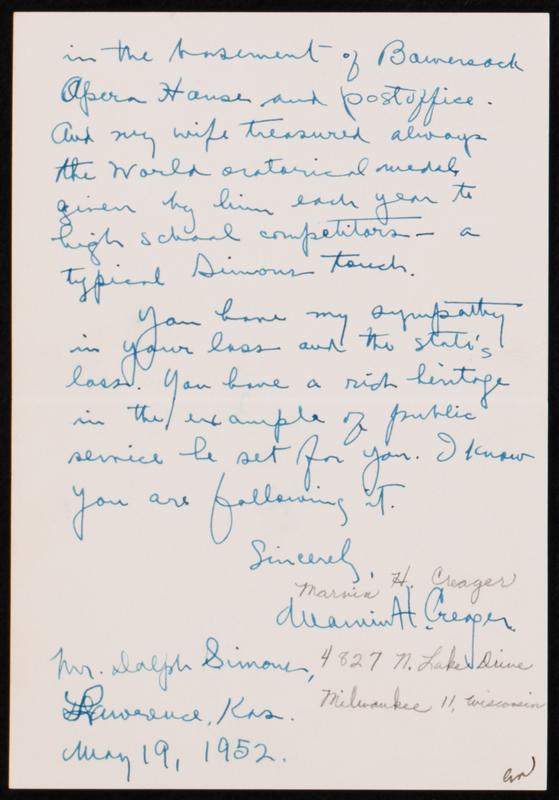 in the basement of Bowersock
Opera House and postoffice.
And my wife treasured always
the World oratorical medals
given by him each year to
high school competitors — a
typical Simons touch.
You have my sympathy
in your loss and the state's
loss. You have a rich heritage
in the example of public
service he set for you. I know
you are following it.
Sincerely,
Marvin H. Creager
Marvin H. Creager.
Mr. Dolph Simons,
4827 N. Lake Drive
Lawrence, Kas.
Milwaukee 11, Wisconsin
May 19, 1952.